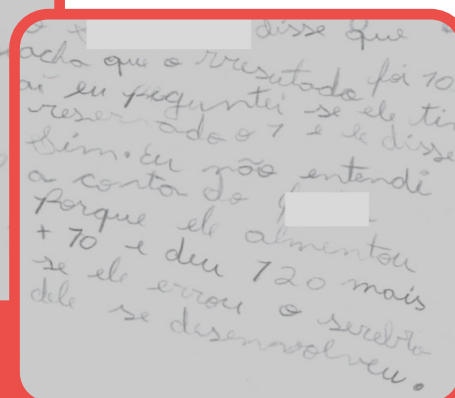 disse que
acha que o rresutado foi 10
aí eu peguntei se ele tin
reservado o 1 e le disse
Sim. Eu não entendi
a conta do
Porque ele almentou
+ 10 e deu 120 mais
se ele errou o serebro
dele se desenvolveu.